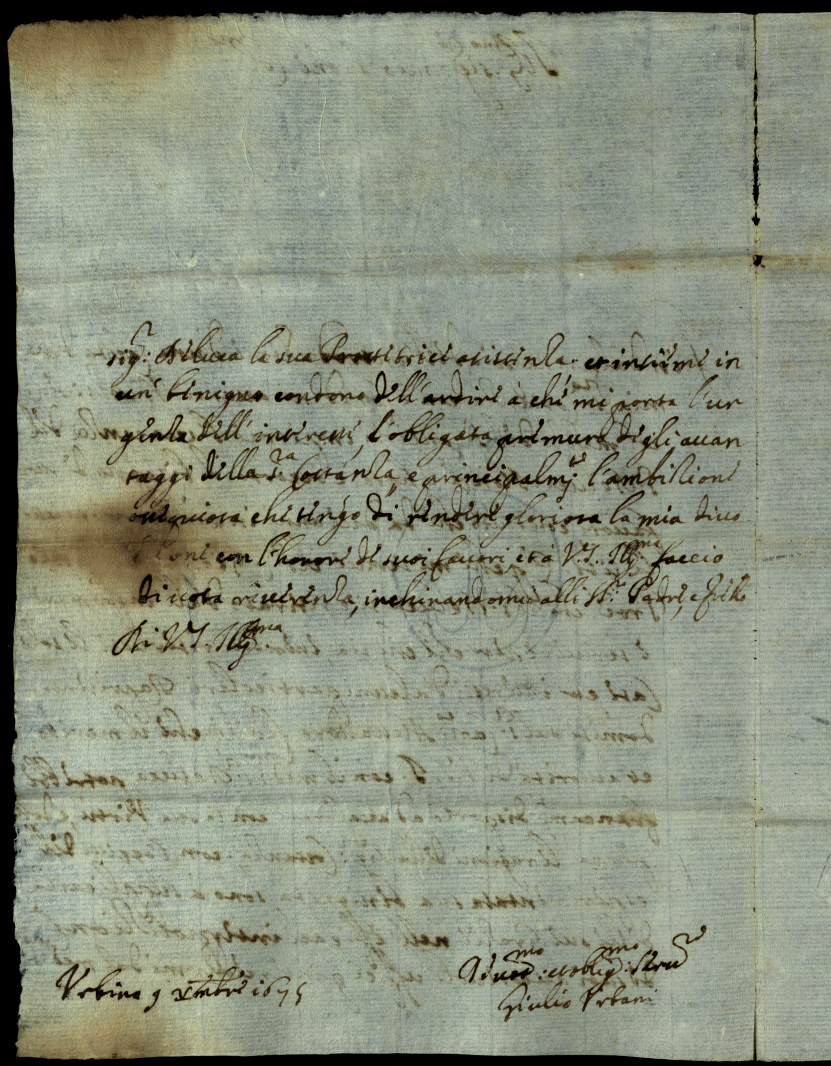 sig.r De luca la sua Protetrice assistenza, et insieme in
un' benigno condono dell'ardire à che mi porta l'ur
genza dell' interesse, l'obligata premura degli auan
taggi della S.ra Costanza, e principalm.te l'ambitione
ossequiosa che tengo di rendere gloriosa la mia diuo
tione con l'honore de suoi fauori, et à V.S. Ill.ma faccio
diuota riuerenza, inchinandomi alli SS.ri Padre, e
Di V.S. Ill.ma
Vrbino 9 Xmbre 1675
Deuot.mo et oblig.mo Seru.re
Giulio Vrbani